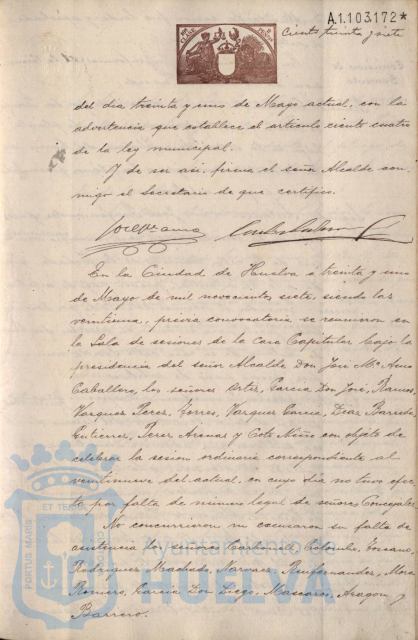 A.1.103.172*
Ciento treinta y siete
del dia treinta y uno de Mayo actual, con la
advertencia que establece el articulo ciento cuatro
de la ley municipal.
Y de ser asi, firma el señor Alcalde con-
migo el Secretario de que certifico.
En la Ciudad de Huelva á treinta y uno
de Mayo de mil novecientos siete, siendo las
veintiuna, previa convocatoria se reunieron en
la Sala de sesiones de la Casa Capitular bajo la
presidencia del señor Alcalde Don José Mª Amo
Caballero, los señores Garcia Don José, Ramos,
Vazquez Perez, Torres, Vazquez Garcia, Diaz Barreda,
Gutierrez, Perez Arenas y Coto Niño con objeto de
celebrar la sesion ordinaria correspondiente al
veintinueve del actual, en cuyo dia no tuvo efec-
to por falta de numero legal de señores Concejales.
No concurrieron ni escusaron su falta de
asistencia los señores Carbonell, Toscano,
Rodriguez Machado, Narvaez, Mora
Romero, Garcia Don Diego, Mascaros, Aragon y
Barrero.
PORTUS MARIS ET TERRAE
Ayuntamiento de
HUELVA